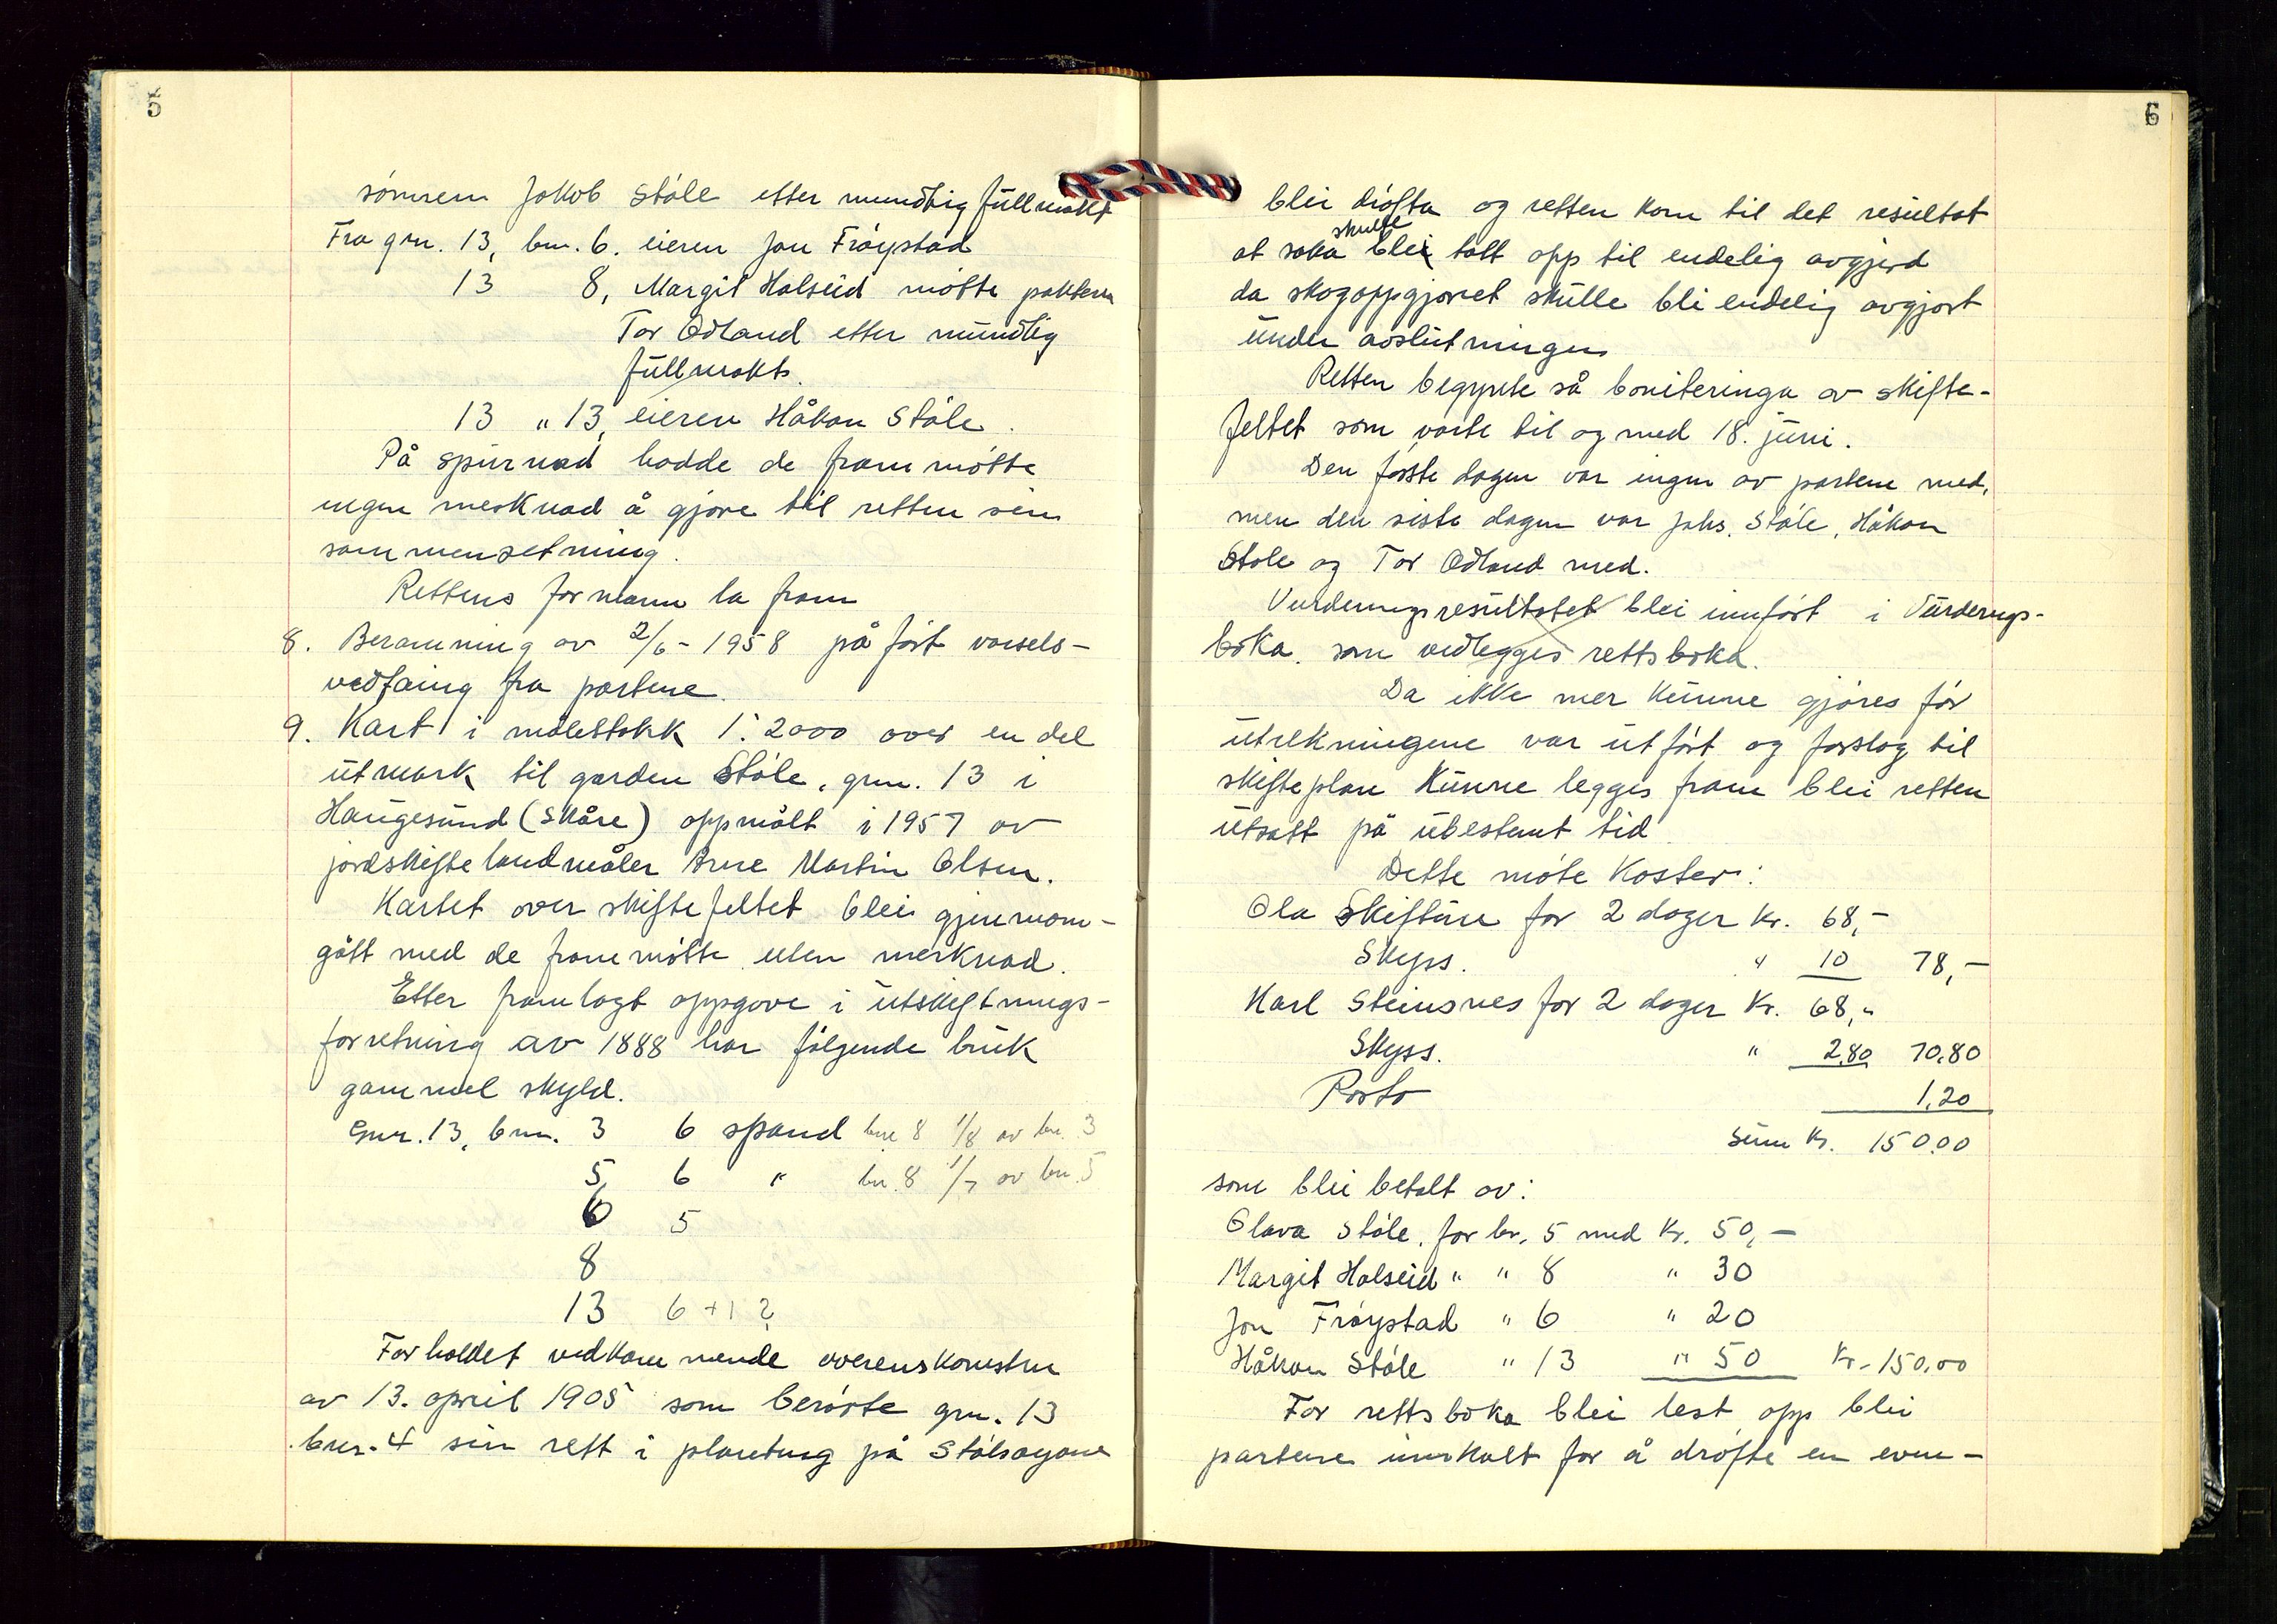 5
sønnen Jakob Støle etter mundtlig fullmakt
Fra gnr. 13, bnr. 6. eieren Jon Frøystad
13 8, Margit Halseid møtte pakteren
Tor Odland etter mundlig
fullmakt.
13 " 13, eieren Håkon Støle.
På spurnad hadde de frammøtte
ingen merknad å gjøre til retten sin
sammensetning.
Rettens formann la fram
8. Beramming av 2/6-1958 påført varsels-
vedtaing fra partene.
9. Kart i målestokk 1:2000 over en del
utmark til garden Støle, gnr. 13 i
Haugesund (Skåre) oppmålt i 1957 av
jordskiftelandmåler Arne Martin Olsen.
Kartet over skiftefeltet blei gjennom-
gått med de frammøtte uten merknad.
Etter framlagt oppgave i utskiftnings-
forretning av 1888 har følgende bruk
gammel skyld.
Gnr. 13, bnr. 3 6 spand bnr. 8 1/8 av bnr. 3
5, 6 " bnr. 8 1/7 av bnr. 5
6 5
8
13 6 + 1 ?
Forholdet vedkommende overenskomsten
av 13. april 1905 som berørte gnr. 13
bnr. 4 sin rett i planting på Stølsøyane
6
blei drøfta og retten kom til det resultat
skulle
at saka blei tatt opp til endelig avgjerd
da skogoppgjøret skulle bli endelig avgjort
under avslutningen
Retten begynte så boniteringa av skifte-
feltet som varte til og med 18. juni.
Den første dagen var ingen av partene med,
men den siste dagen var Johs. Støle, Håkon
Støle og Tor Odland med.
Vurderingsresultatet blei innført i Vurderings-
boka som vedlegges rettsboka.
Da ikke mer kunne gjøres før
utrekningene var utført og forslag til
skifteplan kunne legges fram blei retten
utsatt på ubestemt tid
Dette møte koster:
Ola Skiftun for 2 dager kr. 68,-
Skyss. " 10 78,-
Karl Steinsnes for 2 dager kr. 68,-
Skyss. " 2.80 70.80
Porto 1.20
Sum kr. 150.00
som blei betalt av:
Olava Støle, for br. 5 med kr. 50,-
Margit Halseid " " 8 " 30
Jon Frøystad " 6 " 20
Håkon Støle " 13 " 50 Kr. 150.00
Før rettsboka blei lest opp blei
partene innkalt for å drøfte en even-